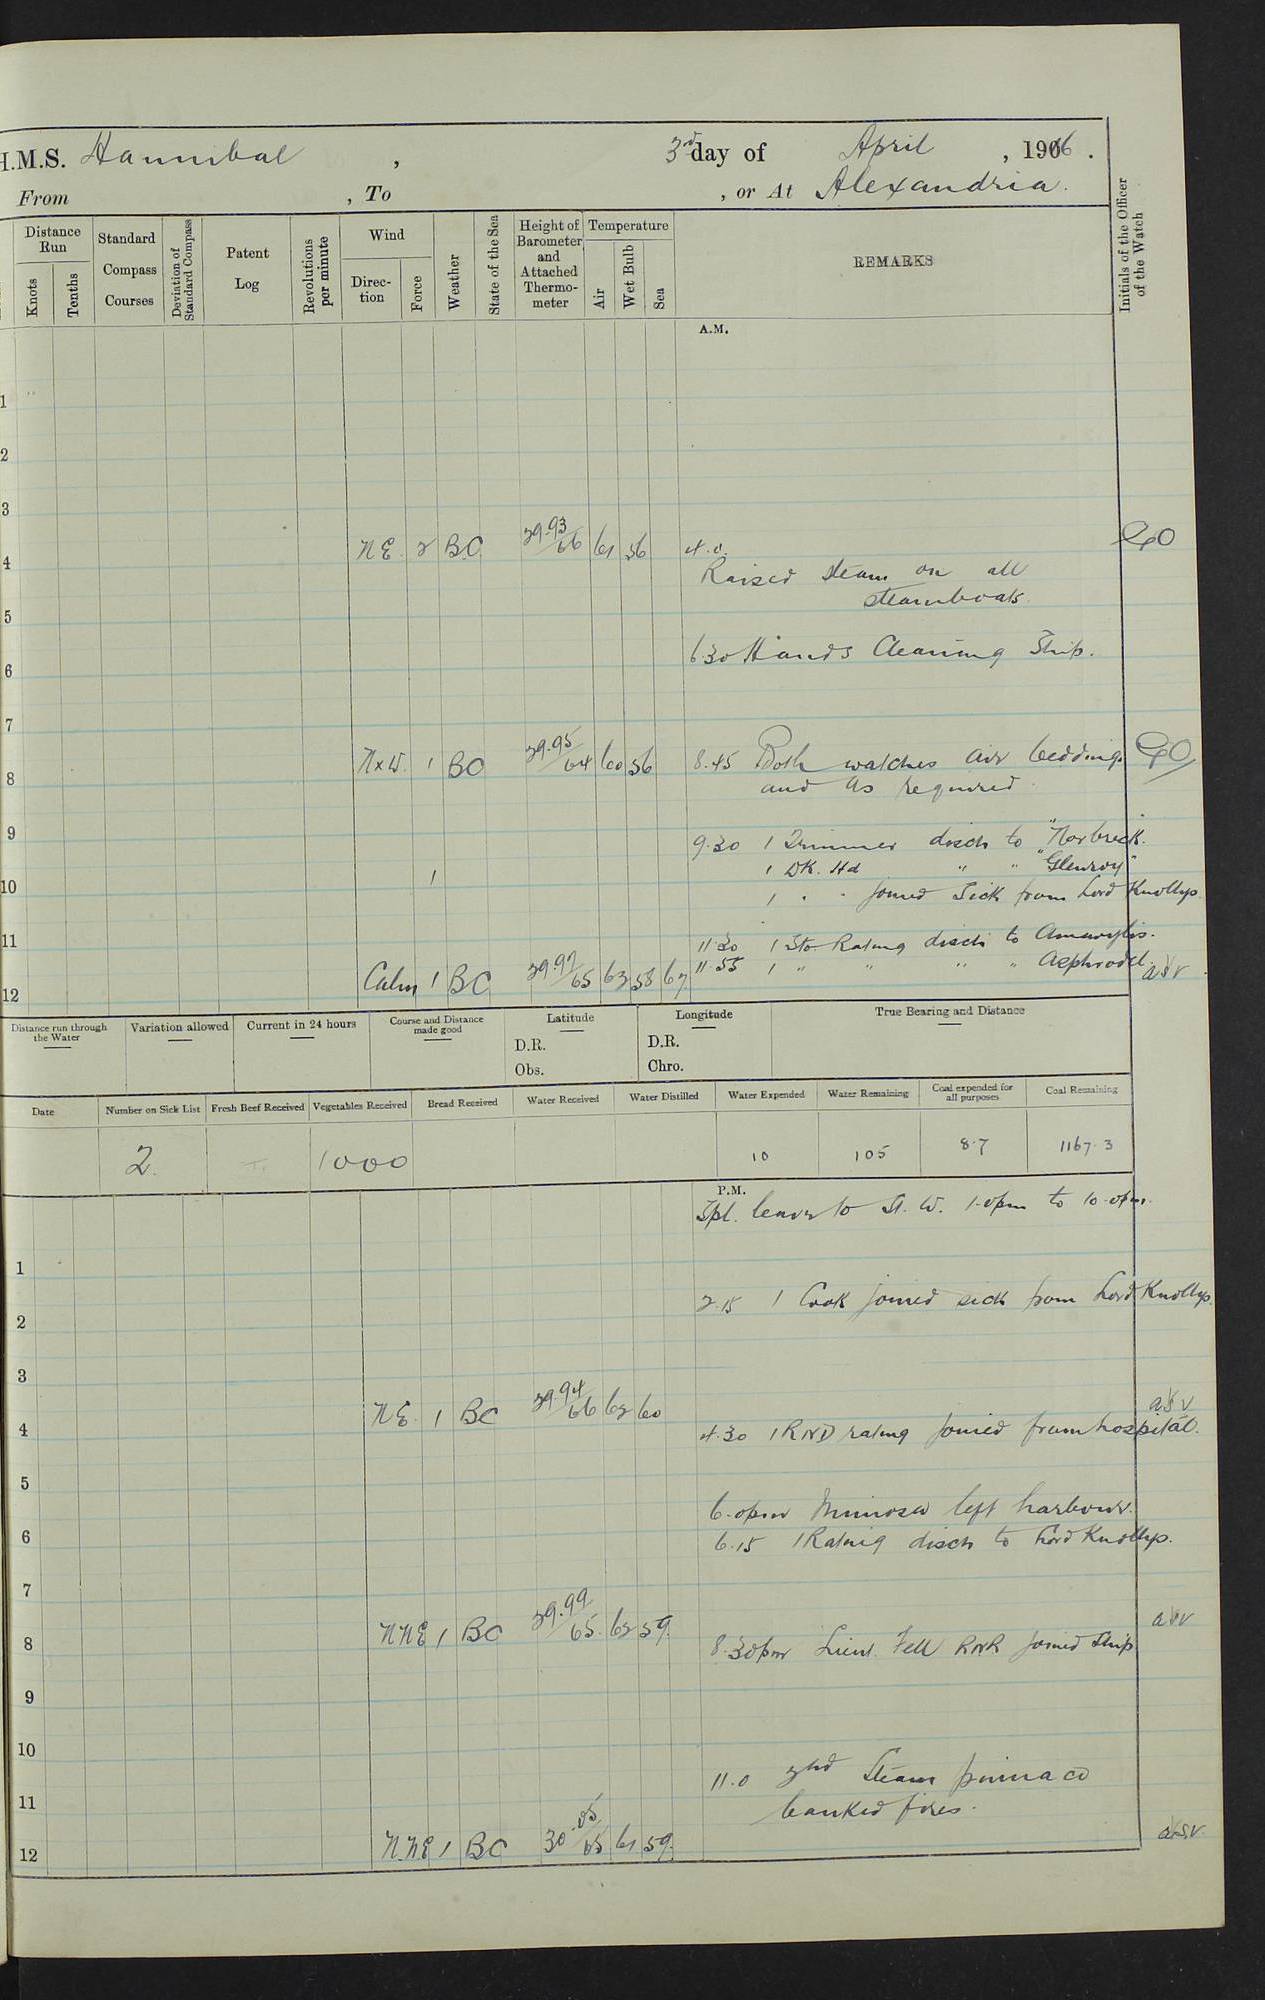 H.M.S. Hannibal , 3rd day of April , 1916 .
From , To , or At Alexandria.
Distance Run
Knots
Tenths
Standard Compass Courses
Deviation of Standard Compass
Patent Log
Revolutions per minute
Wind
Direction
Force
Weather
State of the Sea
Height of Barometer and Attached Thermometer
Temperature
Air
Wet Bulb
Sea
REMARKS
Initials of the Officer of the Watch
A.M.
1
2
3
4 NE. 2 B.C. 29.93/66 61 56 4.0.
Raised steam on all
steamboats.
5
6 6.30 Hands Cleaning Ship.
7
8 NxW. 1 BC 29.95/64 60 56 8.45 Both watches air bedding
and as required
9 9.30 1 Trimmer disch to "Norbreck."
1 DK. Hd " " "Glenroy"
10 1 " " joined Sick from Lord Knollys
11 11.30 1 Sto Rating disch to Amaryllis.
11.55 1 " " " " Asphodel.
12 Calm 1 BC 29.97/65 63 58 67 asv
Distance run through the Water
Variation allowed
Current in 24 hours
Course and Distance made good
Latitude
D.R.
Obs.
Longitude
D.R.
Chro.
True Bearing and Distance
Date
Number on Sick List
Fresh Beef Received
Vegetables Received
Bread Received
Water Received
Water Distilled
Water Expended
Water Remaining
Coal expended for all purposes
Coal Remaining
2. 1000 10 105 8.7 1167.3
P.M.
Spl. leave to St. W. 1.0pm to 10.0pm.
1
2 2.15 1 Cook joined sick from Lord Knollys.
3
4 NE. 1 BC 29.94/66 62 60 asv
4.30 1 RND rating joined from hospital.
5
6 6.0pm Mimosa left harbour.
6.15 1 Rating disch to Lord Knollys.
7
8 NNE 1 BC 29.99/65. 62 59. asv
8.30pm Lieut. Fell RNR joined Ship
9
10
11 11.0 2nd Steam pinnace
banked fires.
12 N.NE 1 BC 30.05/65 61 59. asv.